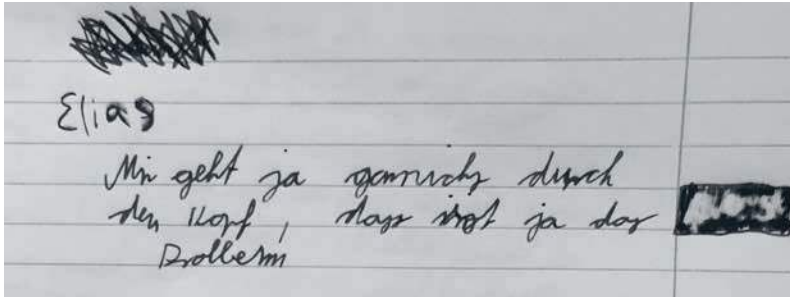 Elias
Mir geht ja garnicht durch
den Kopf, das ist ja das
Problem